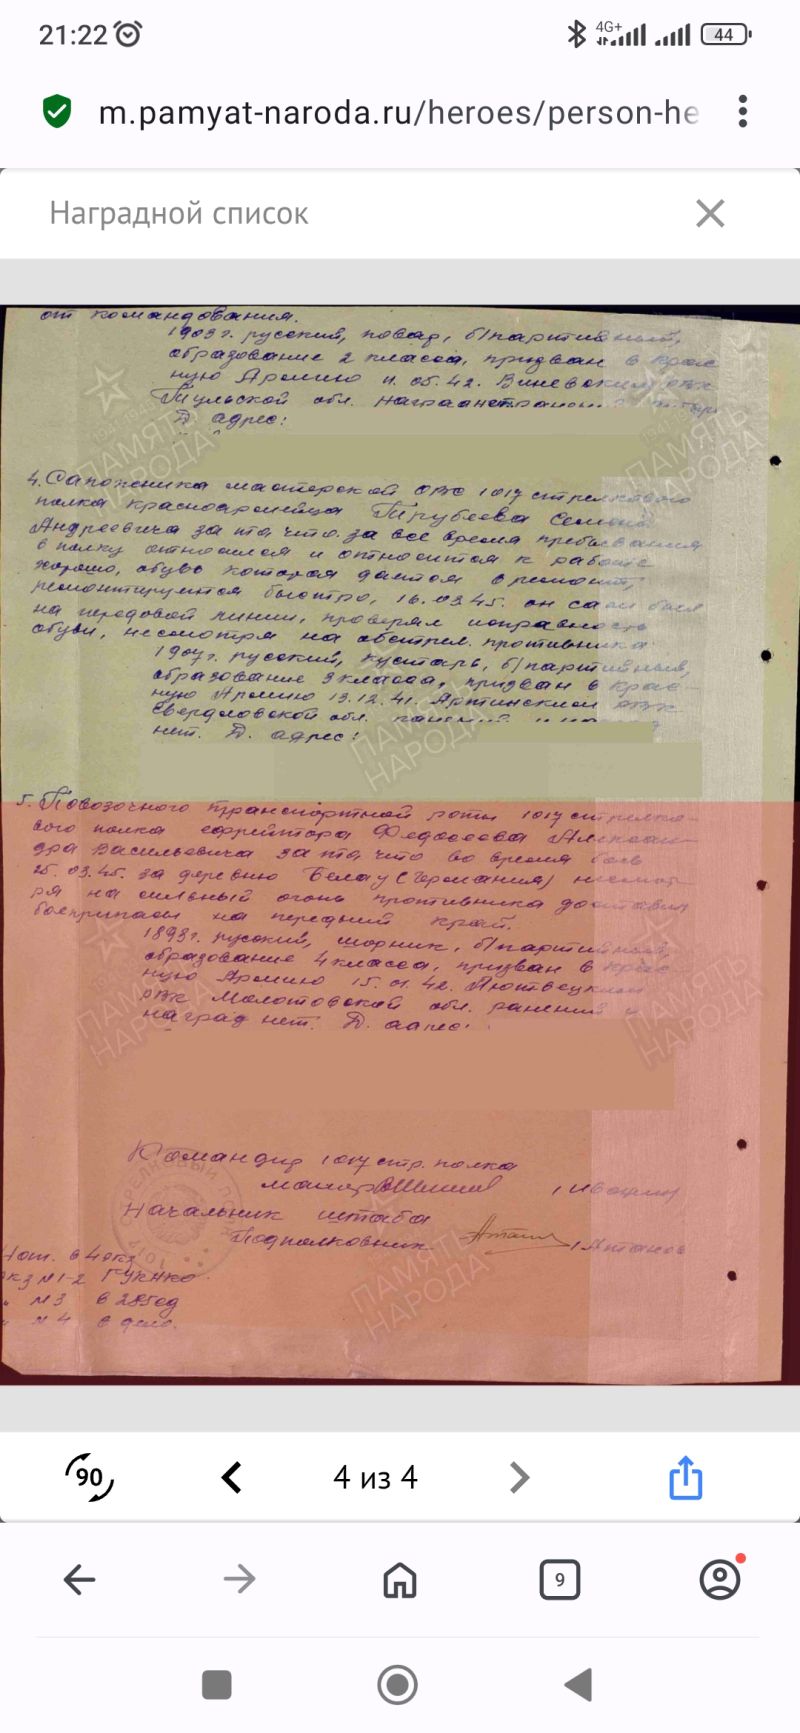 21:22
4G+
44
m.pamyat-naroda.ru/heroes/person-he
Наградной список
от командования.
1903г. русский, повар, б/партийный,
образование 2 класса, призван в Крас
ную Армию 11.05.42.
Тульской обл.
Д. адрес:
4. Сапожника мастерской ОВС 1017 стрелкового
полка красноармейца Трубеева Семена
Андреевича за то что за все время пребывания
в полку относился и относится к работе
хорошо, обувь которая дается в ремонт,
ремонтируется быстро, 16.03.45. он сам был
на передовой линии, проверял исправность
обуви, несмотря на обстрел противника.
1907г. русский, кустарь, б/партийный,
образование 3 класса, призван в Крас-
ную Армию 13.12.41. Артинским РВК
Свердловской обл. ранений и
нет. Д. адрес:
5. Повозочного транспортной роты 1017 стрелко-
вого полка ефрейтора Федосеева Алексан-
дра Васильевича за то что во время боев
25.03.45. за деревню (Германия) несмот-
ря на сильный огонь противника доставил
боеприпасы на передний край.
1893г. русский, шорник, б/партийный,
образование 4 класса, призван в Крас
ную Армию 15.01.42.
РВК Молотовской обл. ранений и
наград нет. Д. адрес:
Командир 1017 стр. полка
майор
Начальник штаба
Подполковник
Отп. в 4 экз
экз №1-2 ГУКНКО
" №3 в 285сд
" №4 в дело.
ПАМЯТЬ
НАРОДА
90
4 из 4
9